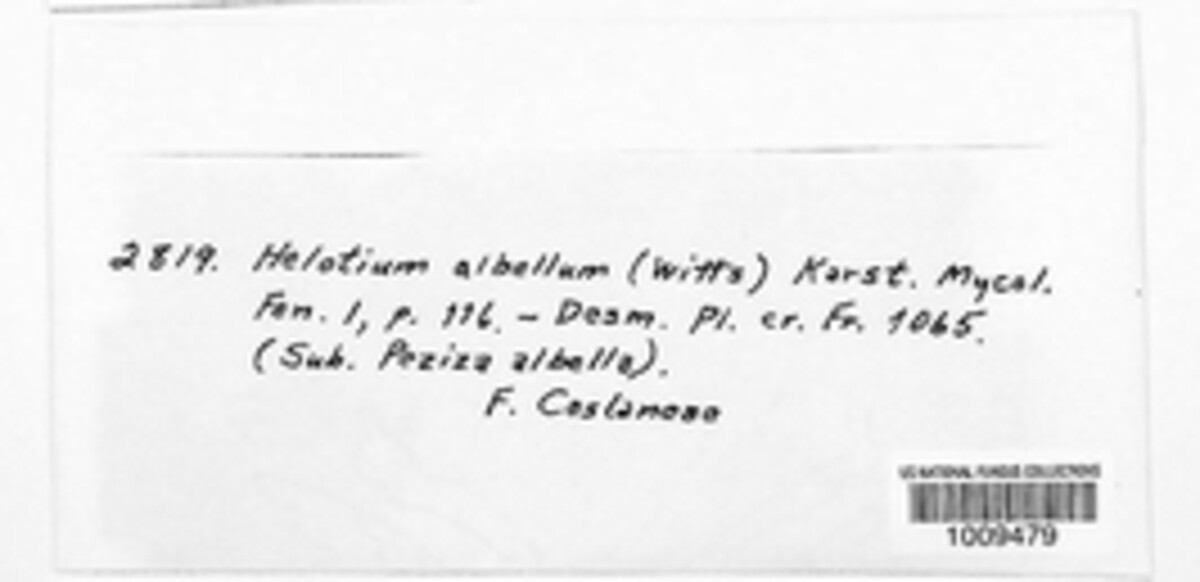 2819. Helotium albellum (Witts) Karst. Mycol.
Fen. 1, p. 116. – Desm. Pl. cr. Fr. 1065.
(Sub. Peziza albella).
F. Castaneae
US NATIONAL FUNGUS COLLECTIONS
1009479